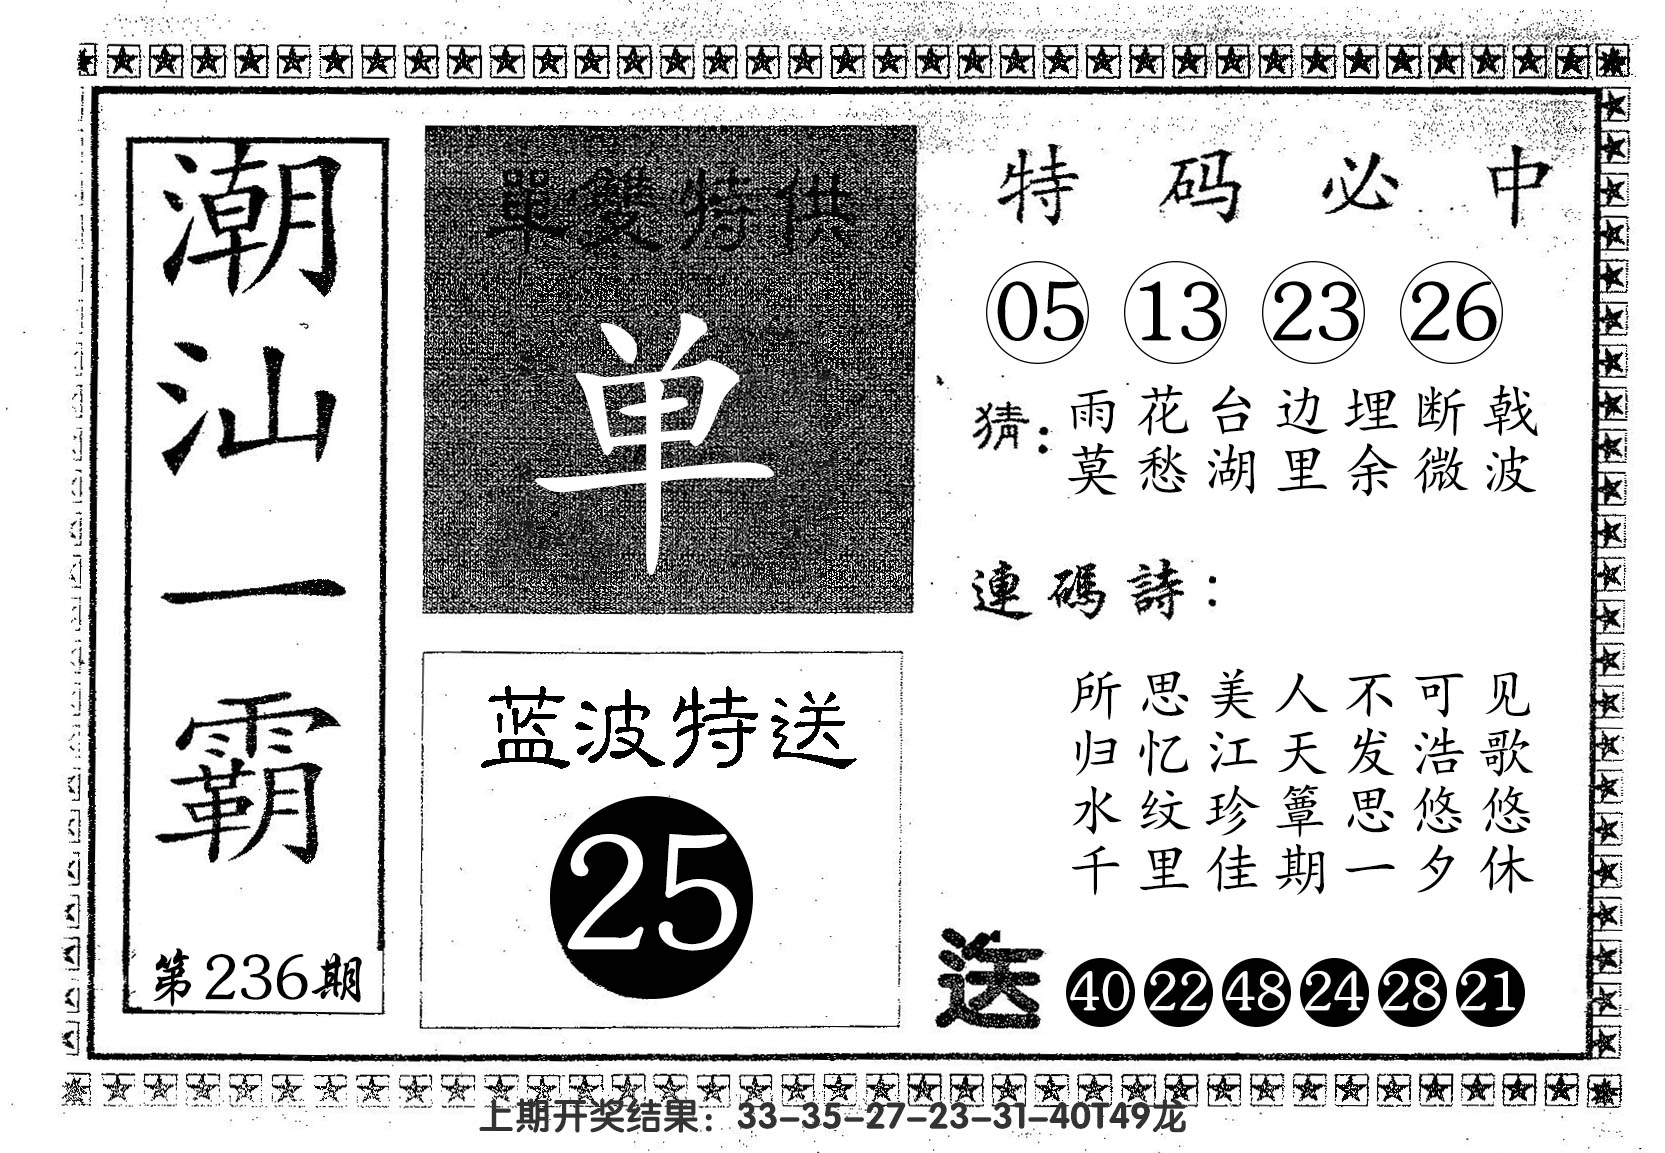 潮汕一霸
第236期
單雙特供
单
蓝波特送
25
特码必中
05 13 23 26
猜：雨花台边埋断戟
莫愁湖里余微波
連碼詩：
所思美人不可见
归忆江天发浩歌
水纹珍簟思悠悠
千里佳期一夕休
送 40 22 48 24 28 21
上期开奖结果：33-35-27-23-31-40T49龙